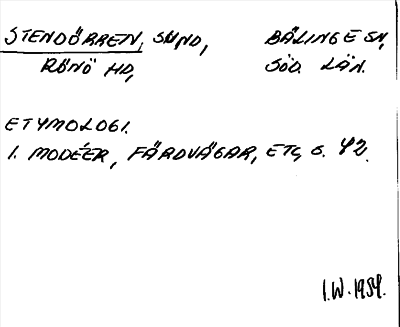 STENDÖRREN, SUND, BÄLINGE SN,
RÖNÖ HD, SÖD. LÄN.
ETYMOLOGI.
I. MODÉER, FÄRDVÄGAR, ETC, S. 42.
I.W. 1954.